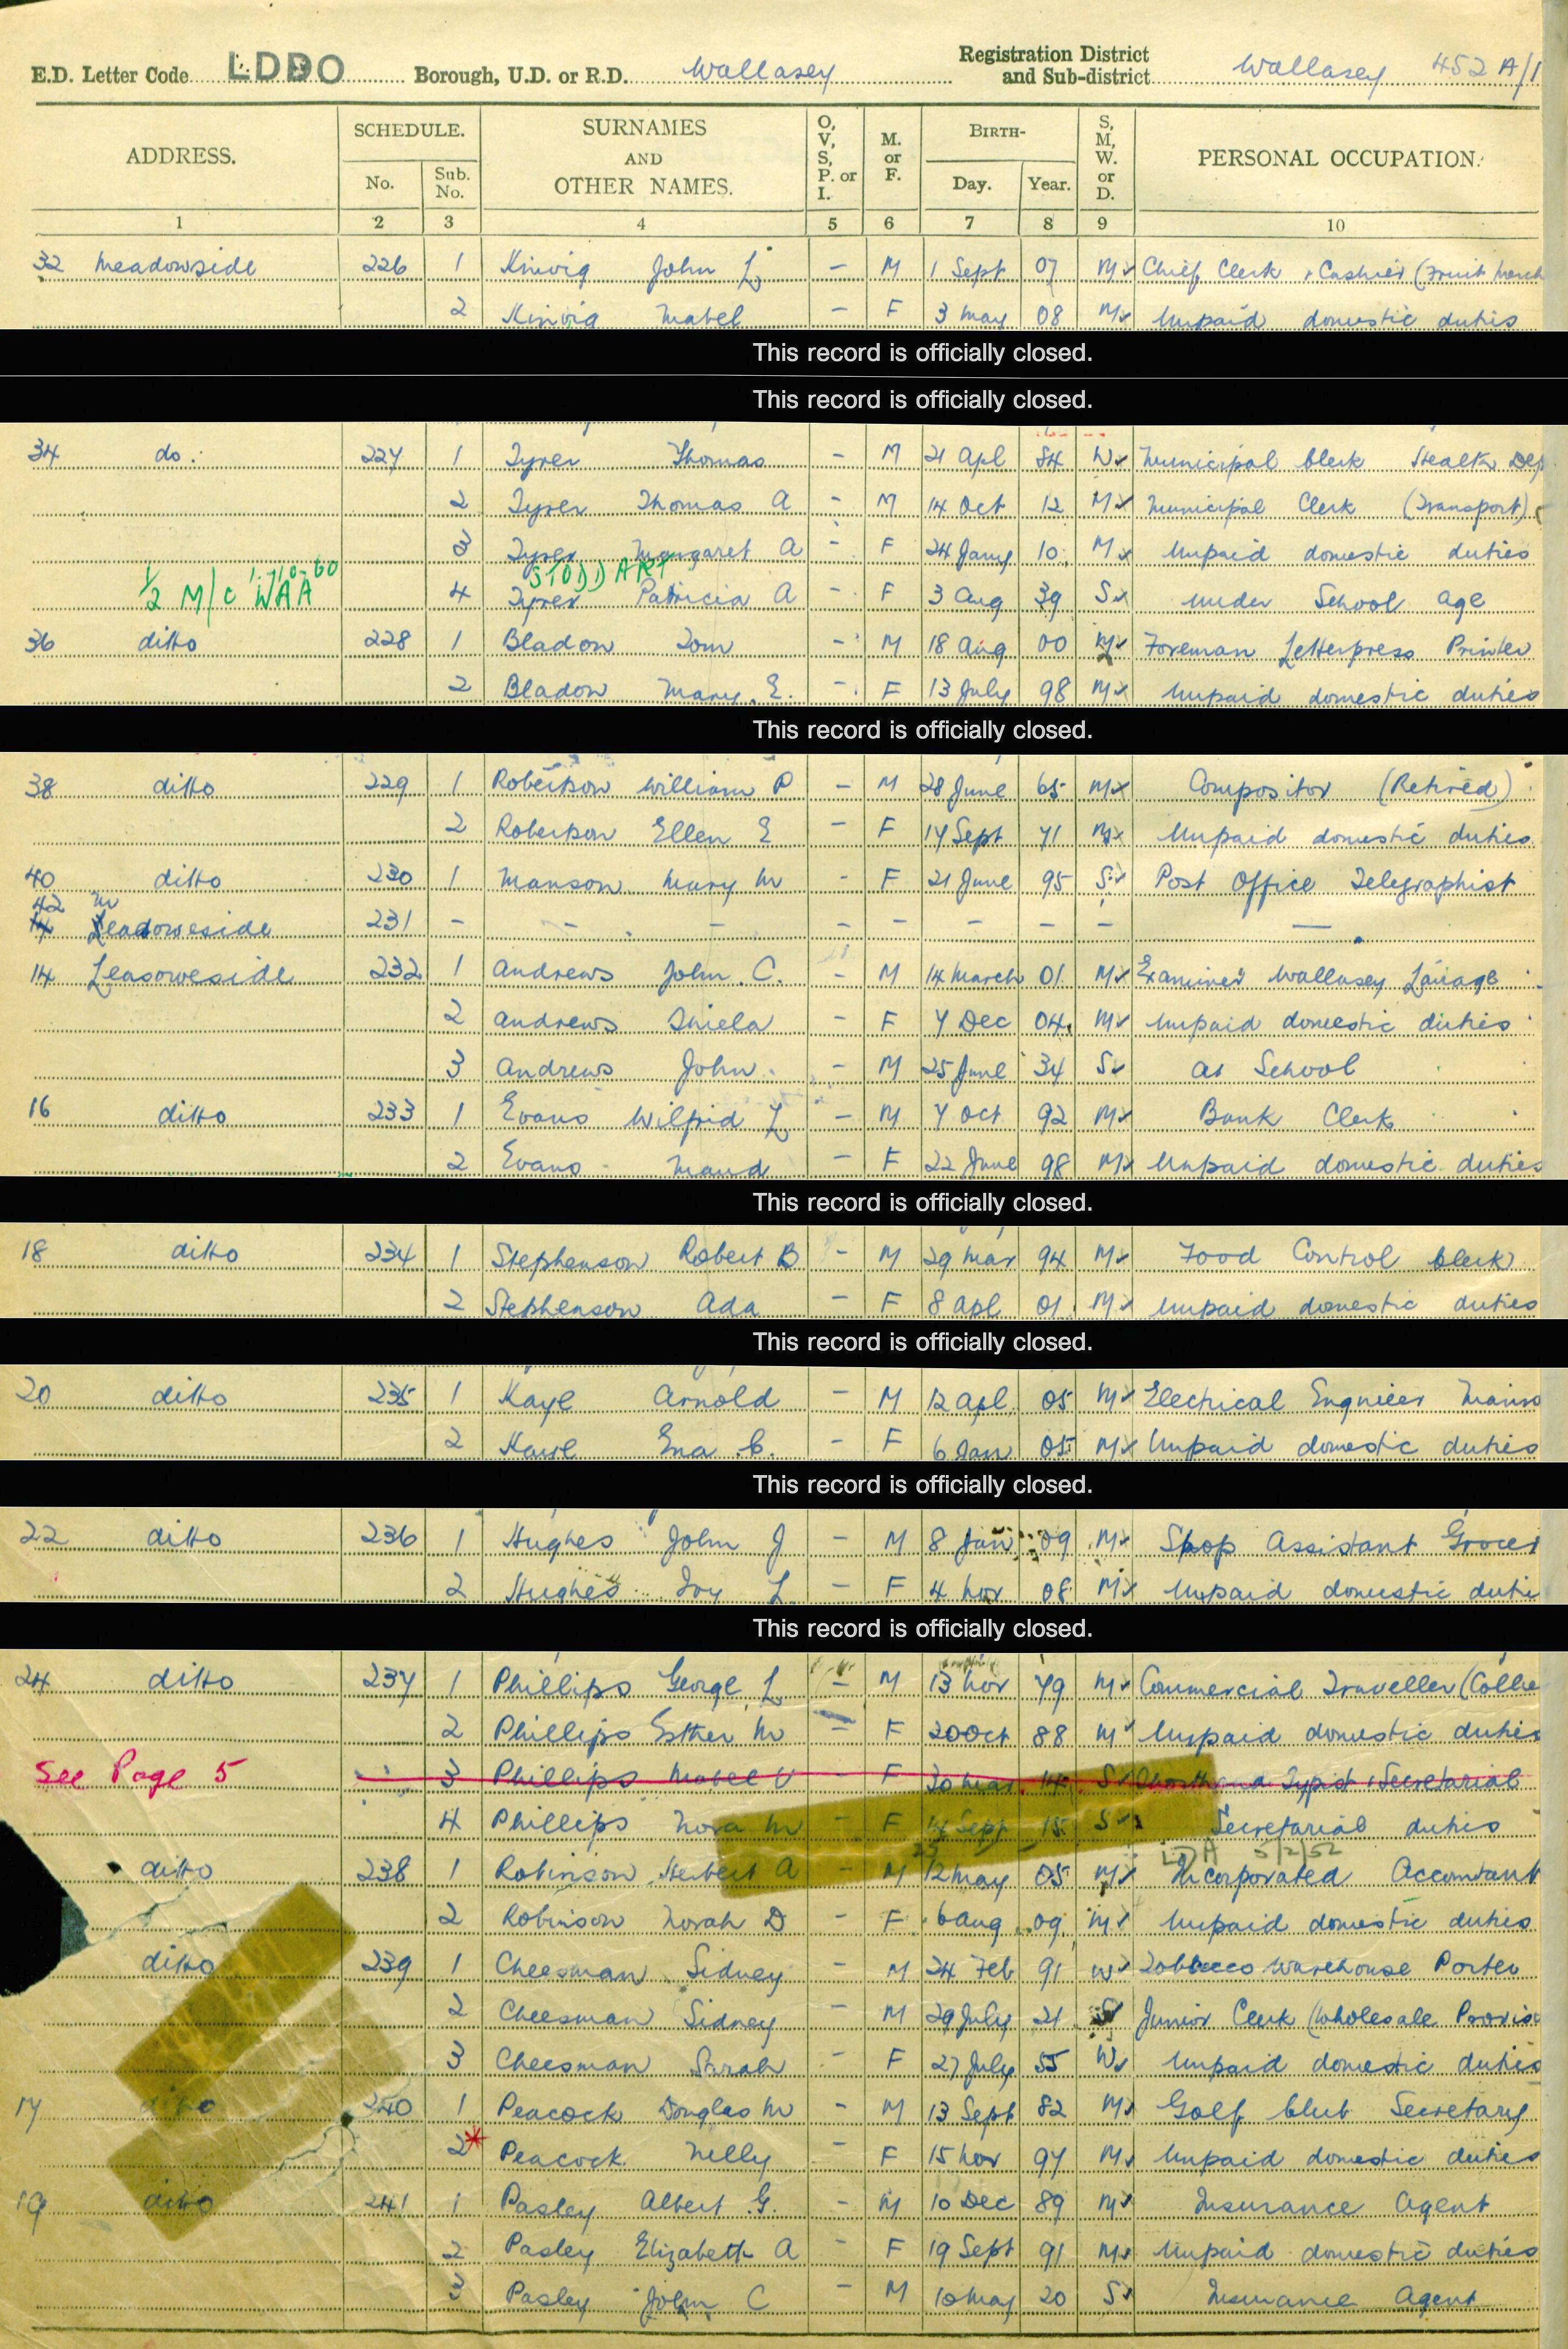 E.D. Letter Code LDDO Borough, U.D. or R.D. Wallasey Registration District and Sub-district Wallasey 452 A/1
ADDRESS. SCHEDULE. No. Sub. No. SURNAMES AND OTHER NAMES. O, V, S, P. or I. M. or F. BIRTH- Day. Year. S, M, W. or D. PERSONAL OCCUPATION.
1 2 3 4 5 6 7 8 9 10
32 Meadowside 226 1 Kinvig John L - M 1 Sept 07 M Chief Clerk & Cashier (Fruit Merch
2 Kinvig Mabel - F 3 May 08 M Unpaid domestic duties
This record is officially closed.
This record is officially closed.
34 do. 227 1 Tyrer Thomas - M 21 Apl 84 W Municipal Clerk Health Dep
2 Tyrer Thomas A - M 14 Oct 12 M Municipal Clerk (Transport)
3 Tyrer Margaret A - F 24 Jany 10 M Unpaid domestic duties
STODDART
1/2 M/C WAA 4 Tyrer Patricia A - F 3 Aug 39 S Under School age
36 ditto 228 1 Bladon Tom - M 18 Aug 00 M Foreman Letterpress Printer
2 Bladon Mary E. - F 13 July 98 M Unpaid domestic duties
This record is officially closed.
38 ditto 229 1 Robertson William P - M 28 June 65 M Compositor (Retired)
2 Robertson Ellen E - F 17 Sept 71 M Unpaid domestic duties
40 ditto 230 1 Manson Mary M - F 21 June 95 S Post Office Telegraphist
42 M
14 Leadoweside 231 - - - - - - - -
14 Leasoweside 232 1 Andrews John C. - M 14 March 01 M Examiner Wallasey
2 Andrews Shiela - F 7 Dec 04 M Unpaid domestic duties
3 Andrews John - M 25 June 34 S At School
16 ditto 233 1 Evans Wilfrid L - M 7 Oct 92 M Bank Clerk
2 Evans Maud - F 22 June 98 M Unpaid domestic duties
This record is officially closed.
18 ditto 234 1 Stephenson Robert B - M 29 Mar 94 M Food Control Clerk
2 Stephenson Ada - F 8 Apl 01 M Unpaid domestic duties
This record is officially closed.
20 ditto 235 1 Kaye Arnold - M 12 Apl 05 M Electrical Engineer Mains
2 Kaye Ena C. - F 6 Jan 05 M Unpaid domestic duties
This record is officially closed.
22 ditto 236 1 Hughes John J - M 8 Jan 09 M Shop Assistant Grocer
2 Hughes Ivy L - F 4 Nov 08 M Unpaid domestic dutie
This record is officially closed.
24 ditto 237 1 Phillips George L - M 13 Nov 79 M Commercial Traveller (Collie
2 Phillips Esther M - F 20 Oct 88 M Unpaid domestic duties
See Page 5 3 Phillips Mabel V - F 30 Mar 14 S Shorthand Typist & Secretarial
4 Phillips Nora M - F 14 Sept 15 S Secretarial duties
25 LDA 5/2/52
ditto 238 1 Robinson Herbert A - M 12 May 05 M Incorporated Accountant
2 Robinson Norah D - F 6 Aug 09 M Unpaid domestic duties
ditto 239 1 Cheesman Sidney - M 24 Feb 91 W Tobacco Warehouse Porter
2 Cheesman Sidney - M 29 July 21 S Junior Clerk (Wholesale Provis
3 Cheesman Sarah - F 27 July 55 W Unpaid domestic duties
17 ditto 240 1 Peacock Douglas M - M 13 Sept 82 M Golf Club Secretary
2* Peacock Nelly - F 15 Nov 97 M Unpaid domestic duties
19 ditto 241 1 Pasley Albert G. - M 10 Dec 89 M Insurance Agent
2 Pasley Elizabeth A - F 19 Sept 91 M Unpaid domestic duties
3 Pasley John C - M 10 May 20 S Insurance Agent